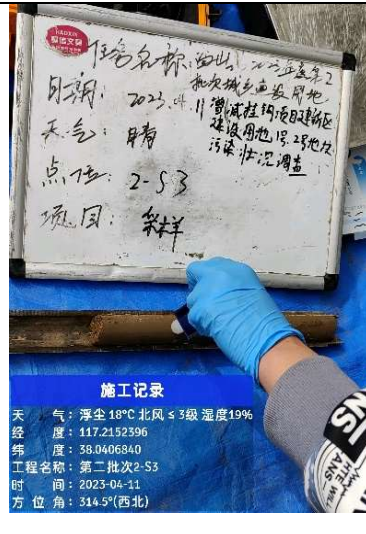 任务名称:
日期: 2023.04.11
批次城乡建设用地
增减挂钩项目建新区
建设用地1号、2号地块
污染状况调查
天气: 晴
点位: 2-S3
项目: 采样
施工记录
天 气:浮尘 18℃ 北风 ≤ 3级 湿度19%
经 度:117.2152396
纬 度:38.0406840
工程名称:第二批次2-S3
时 间:2023-04-11
方 位 角:314.5°(西北)